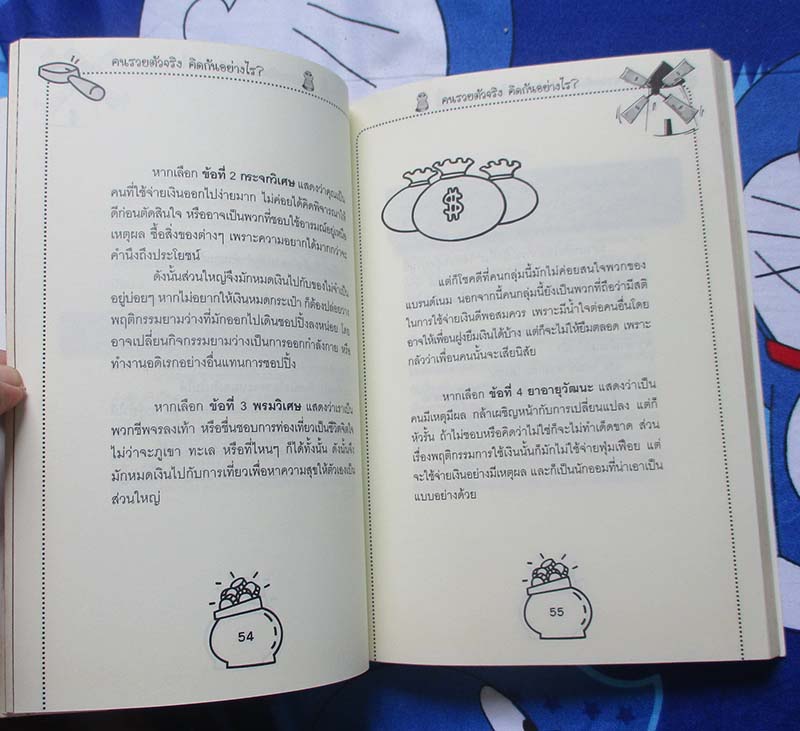 คนรวยตัวจริง คิดกันอย่างไร?
หากเลือก ข้อที่ 2 กระจกวิเศษ แสดงว่าคุณเป็น
คนที่ใช้จ่ายเงินออกไปง่ายมาก ไม่ค่อยได้คิดพิจารณาให้
ดีก่อนตัดสินใจ หรืออาจเป็นพวกที่ชอบใช้อารมณ์อยู่เหนือ
เหตุผล ซื้อสิ่งของต่างๆ เพราะความอยากได้มากกว่าจะ
คำนึงถึงประโยชน์
ดังนั้นส่วนใหญ่จึงมักหมดเงินไปกับของไม่จำเป็น
อยู่บ่อยๆ หากไม่อยากให้เงินหมดกระเป๋า ก็ต้องปล่อยวาง
พฤติกรรมยามว่างที่มักออกไปเดินชอปปิ้งลงหน่อย โดย
อาจเปลี่ยนกิจกรรมยามว่างเป็นการออกกำลังกาย หรือ
ทำงานอดิเรกอย่างอื่นแทนการชอปปิ้ง
หากเลือก ข้อที่ 3 พรมวิเศษ แสดงว่าเราเป็น
พวกชีพจรลงเท้า หรือชื่นชอบการท่องเที่ยวเป็นชีวิตจิตใจ
ไม่ว่าจะภูเขา ทะเล หรือที่ไหนๆ ก็ได้ทั้งนั้น ดังนั้นจึง
มักหมดเงินไปกับการเที่ยวเพื่อหาความสุขให้ตัวเองเป็น
ส่วนใหญ่
54
คนรวยตัวจริง คิดกันอย่างไร?
$
แต่ก็โชคดีที่คนกลุ่มนี้มักไม่ค่อยสนใจพวกของ
แบรนด์เนม นอกจากนี้คนกลุ่มนี้ยังเป็นพวกที่ถือว่ามีสติ
ในการใช้จ่ายเงินดีพอสมควร เพราะมีน้ำใจต่อคนอื่นโดย
อาจให้เพื่อนฝูงยืมเงินได้บ้าง แต่ก็จะไม่ให้ยืมตลอด เพราะ
กลัวว่าเพื่อนคนนั้นจะเสียนิสัย
หากเลือก ข้อที่ 4 ยาอายุวัฒนะ แสดงว่าเป็น
คนมีเหตุมีผล กล้าเผชิญหน้ากับการเปลี่ยนแปลง แต่ก็
หัวรั้น ถ้าไม่ชอบหรือคิดว่าไม่ใช่ก็จะไม่ทำเด็ดขาด ส่วน
เรื่องพฤติกรรมการใช้เงินนั้นก็มักไม่ใช้จ่ายฟุ่มเฟือย แต่
จะใช้จ่ายเงินอย่างมีเหตุผล และก็เป็นนักออมที่น่าเอาเป็น
แบบอย่างด้วย
55